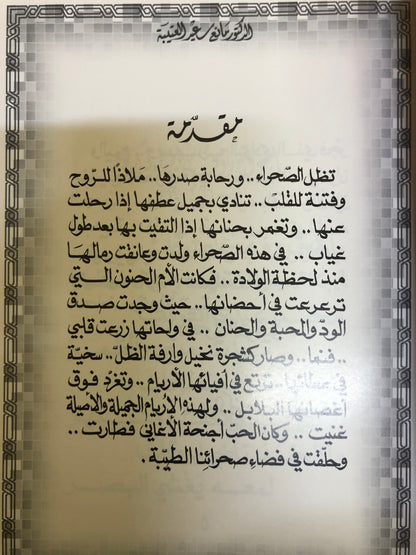 الدكتور مانع سعيد العتيبة
مقدّمة
تظل الصّحراء .. ورحابة صدرها .. مَلاذًا للرّوح
وفتنة للقلب .. تنادي بجميل عطفها إذا رحلت
عنها .. وتغمر بحنانها إذا التقيت بها بعد طول
غياب .. في هذه الصّحراء ولدت وعانقت رمالها
منذ لحظة الولادة .. فكانت الأم الحنون التي
ترعرعت في أحضانها .. حيث وجدت صدق
الودّ والمحبة والحنان .. في واحاتها زرعت قلبي
.. فنما .. وصار كشجرة نخيل وارفة الظلّ .. سخية
في عطائها .. ترتع في أفيائها الأريام .. وتغرّد فوق
أغصانها البلابل .. ولهذه الأريام الجميلة والأصيلة
غنيت .. وكان الحبّ أجنحة الأغاني فطارت ..
وحلّقت في فضاء صحرائنا الطيّبة .